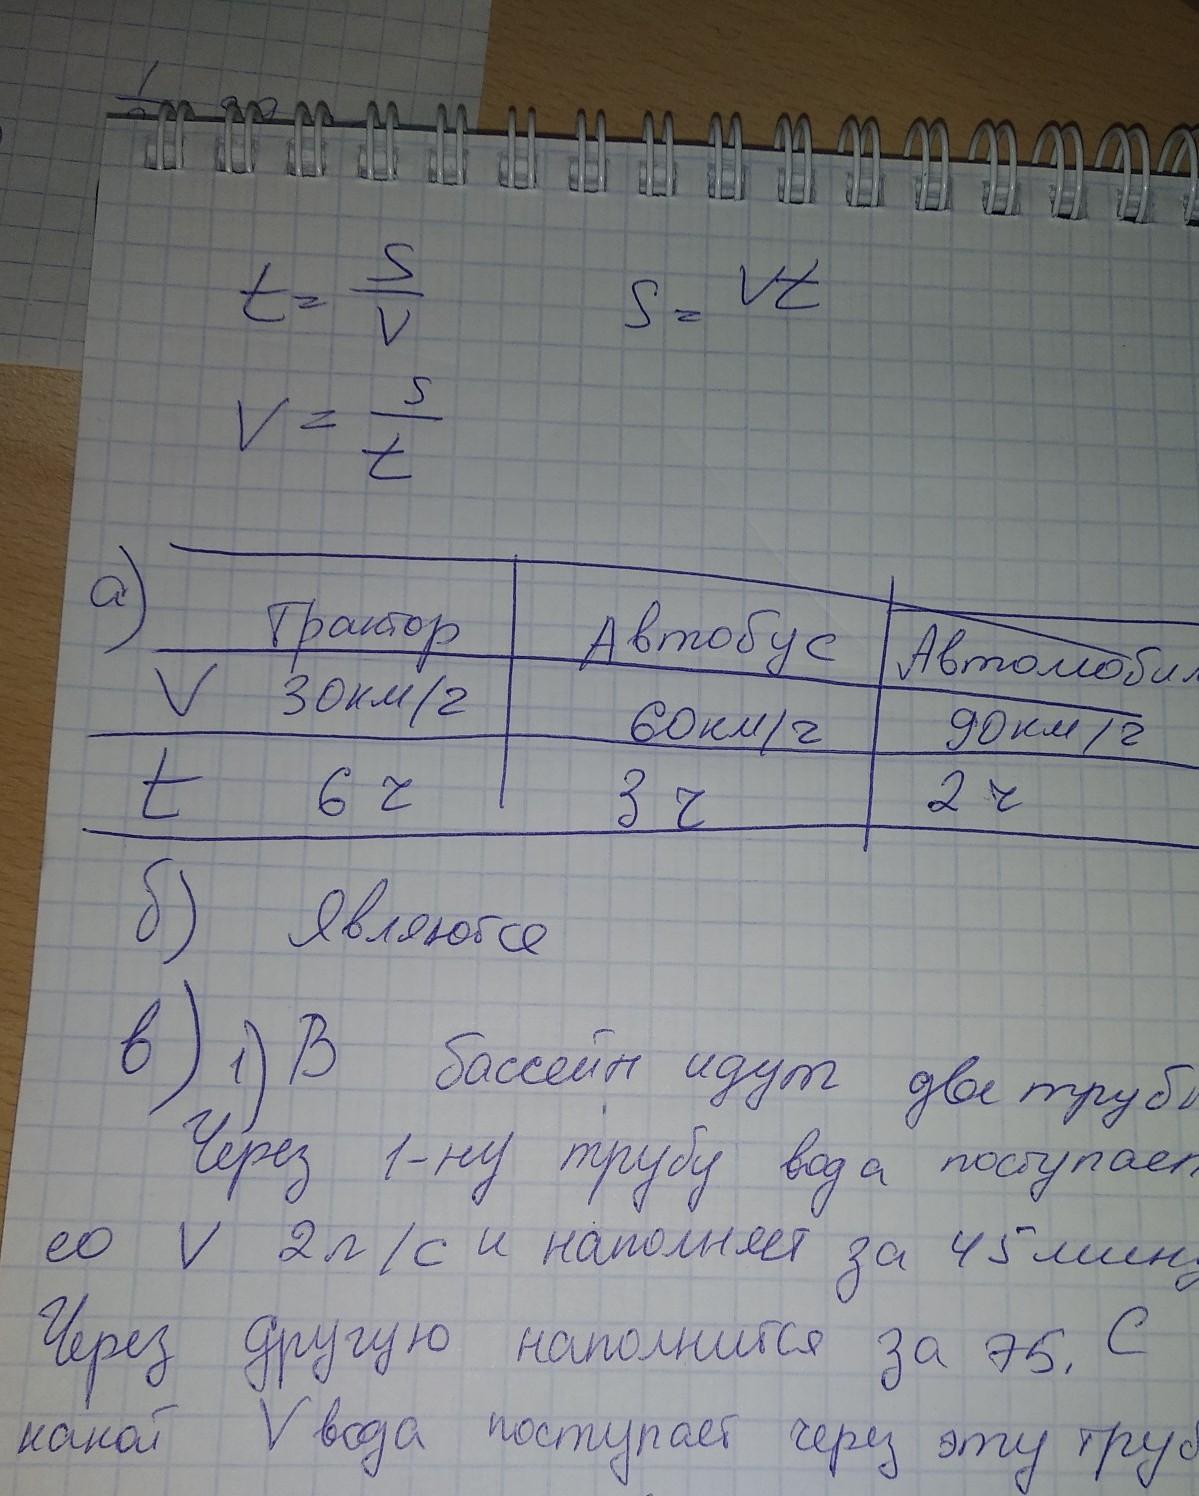 t = S/V S = Vt
V = S/t
а) Трактор Автобус Автомобил
V 30км/ч 60км/ч 90км/ч
t 6 ч 3 ч 2 ч
б) Являются
в) 1) В бассейн идут две трубы
Через 1-ну трубу вода поступает
со V 2л/с и наполняет за 45 мину
Через другую наполнится за 75. С
какой V вода поступает через эту труб